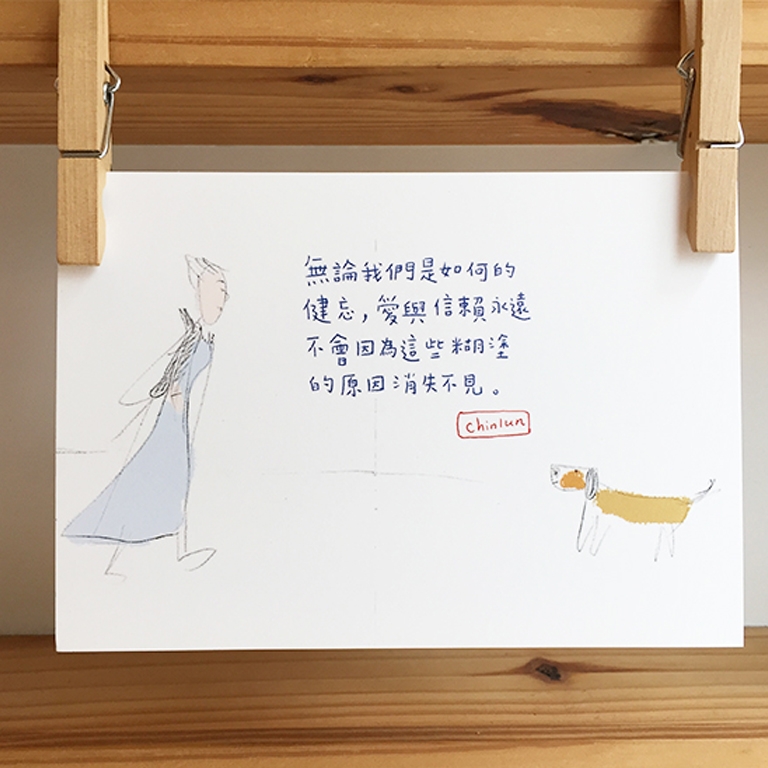 無論我們是如何的
健忘，愛與信賴永遠
不會因為這些糊塗
的原因消失不見。
chinlun